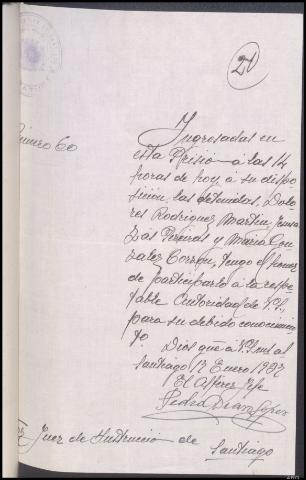 21
Número 60
Ingresadas en
esta Prisión á las 14
horas de hoy, á su dispo
sición las detenidas, Dolo
res Rodriguez Martin, Jesusa
Lois Pereiras y Maria Gon
zalez Corzon, tengo el honor
de participarlo á la respe
table Autoridad de V.S.,
para su debido conocimien
to
Dios gue á V.S. ms. as
Santiago 12 Enero 1937
El Alférez Jefe
Pedro Diaz Lopez
Juez de Instrución de Santiago